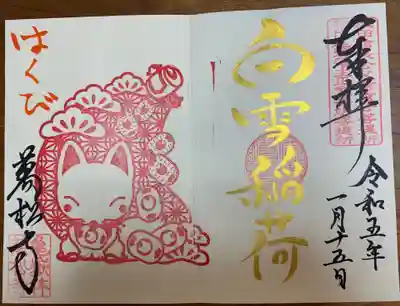 奉拝
白雪稲荷
令和五年
一月十五日
はくび
萬松寺